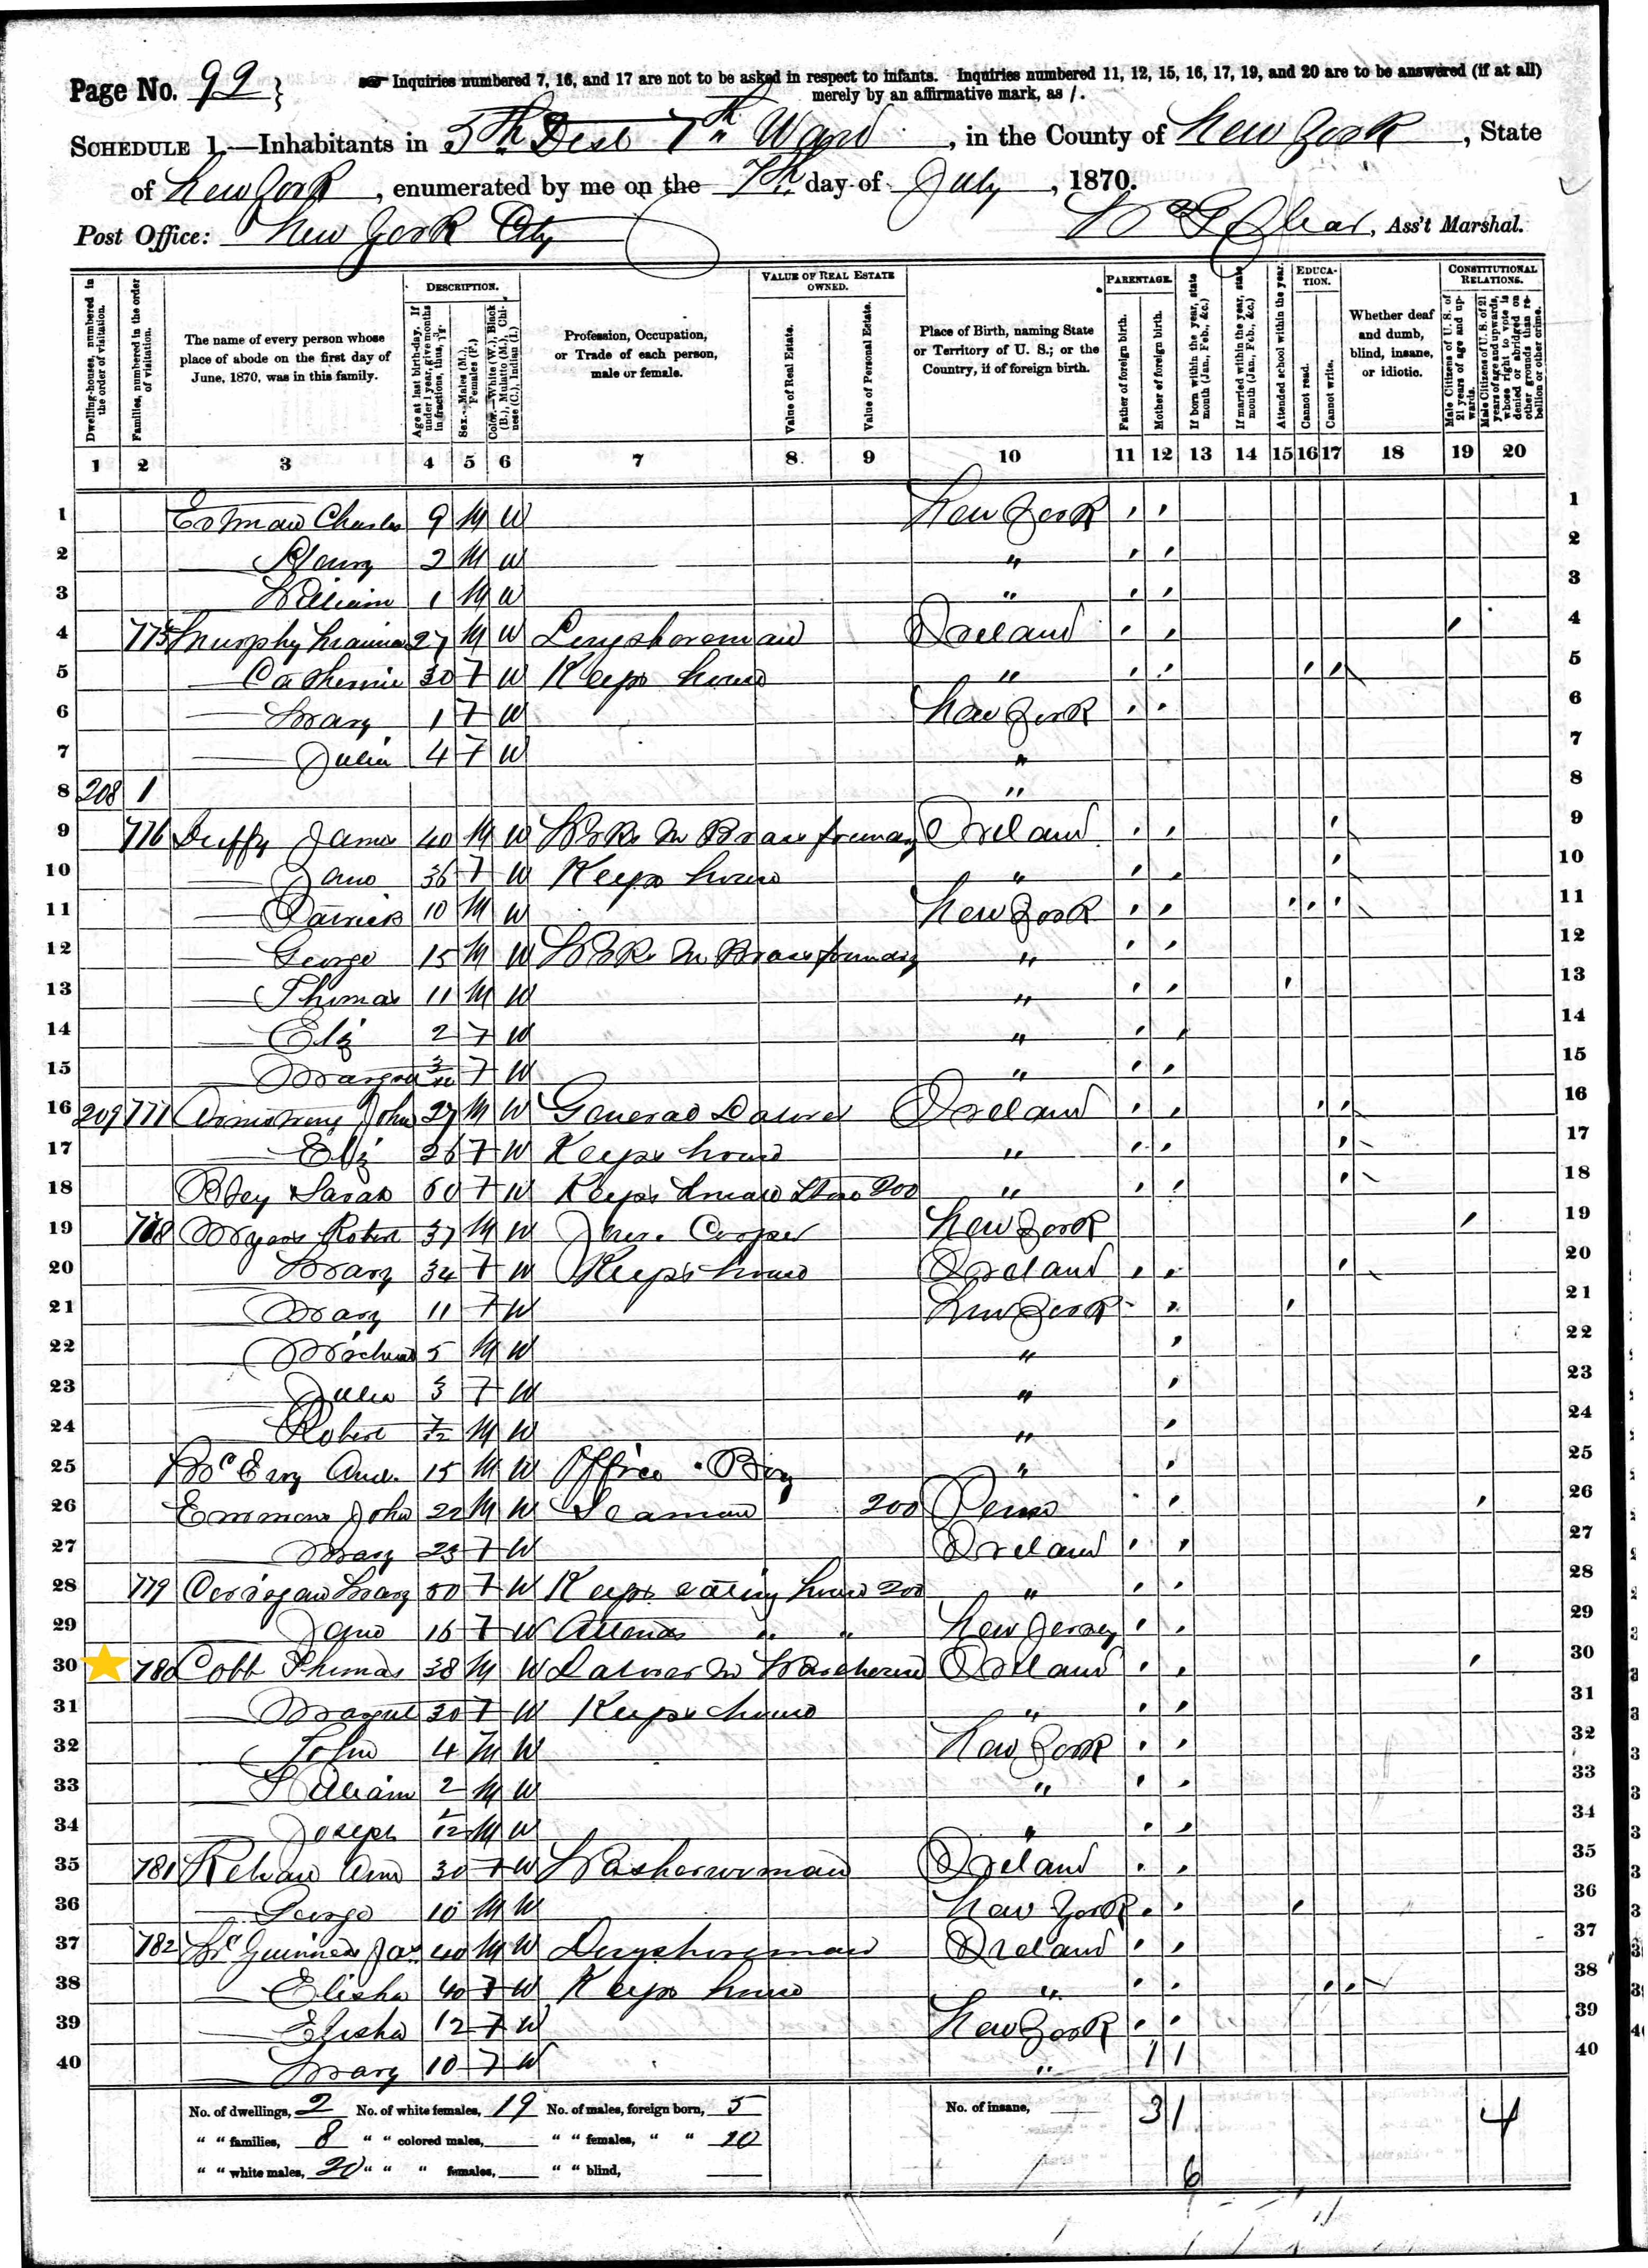 Page No. 99 } Inquiries numbered 7, 16, and 17 are not to be asked in respect to infants. Inquiries numbered 11, 12, 15, 16, 17, 19, and 20 are to be answered (if at all)
merely by an affirmative mark, as /.
SCHEDULE 1.—Inhabitants in 5th Dist 7th Ward, in the County of New York, State
of New York, enumerated by me on the 7th day of July, 1870.
Post Office: New York City , Ass't Marshal.
Dwelling-houses, numbered in the order of visitation.
Families, numbered in the order of visitation.
The name of every person whose place of abode on the first day of June, 1870, was in this family.
DESCRIPTION.
Age at last birth-day. If under 1 year, give months in fractions, thus, 3/12.
Sex.—Males (M.), Females (F.)
Color.—White (W.), Black (B.), Mulatto (M.), Chinese (C.), Indian (I.)
Profession, Occupation, or Trade of each person, male or female.
VALUE OF REAL ESTATE OWNED.
Value of Real Estate.
Value of Personal Estate.
Place of Birth, naming State or Territory of U. S.; or the Country, if of foreign birth.
PARENTAGE.
Father of foreign birth.
Mother of foreign birth.
If born within the year, state month (Jan., Feb., &c.)
If married within the year, state month (Jan., Feb., &c.)
Attended school within the year.
EDUCATION.
Cannot read.
Cannot write.
Whether deaf and dumb, blind, insane, or idiotic.
CONSTITUTIONAL RELATIONS.
Male Citizens of U. S. of 21 years of age and upwards.
Male Citizens of U. S. of 21 years of age and upwards, whose right to vote is denied or abridged on other grounds than rebellion or other crime.
1 2 3 4 5 6 7 8 9 10 11 12 13 14 15 16 17 18 19 20
1 Charles 9 M W New York ' ' 1
2 2 M W " ' ' 2
3 William 1 M W " ' ' 3
4 775 Murphy 27 M W Longshoreman Ireland ' ' ' 4
5 Catherine 30 F W Keeps house " ' ' ' ' 5
6 Mary 1 F W New York ' ' 6
7 Julia 4 F W " 7
8 208 1 " 8
9 776 Duffy James 40 M W Works in Brass foundry Ireland ' ' ' 9
10 Jane 36 F W Keeps house " ' ' ' 10
11 Patrick 10 M W New York ' ' ' ' ' 11
12 George 15 M W Works in Brass foundry " ' ' 12
13 Thomas 11 M W " ' ' ' 13
14 Eliz 2 F W " ' ' 14
15 Margaret F W " ' ' 15
16 209 777 Armstrong John 27 M W General Laborer Ireland ' ' ' ' 16
17 Eliz 26 F W Keeps house " ' ' ' 17
18 Sarah 60 F W Keeps small Store 200 " ' ' ' 18
19 778 Myers Robert 37 M W Cooper New York ' 19
20 Mary 34 F W Keeps house Ireland ' ' ' 20
21 Mary 11 F W New York ' ' 21
22 Michael 5 M W " ' 22
23 Julia 3 F W " ' 23
24 Robert 7/12 M W " ' 24
25 15 M W Office Boy " ' 25
26 Emmons John 22 M W Seaman 200 ' ' ' 26
27 Mary 23 F W Ireland ' ' 27
28 779 Corrigan Mary 50 F W Keeps eating house 200 " ' ' 28
29 Jane 16 F W Attends " " New Jersey ' ' 29
30 780 Cobb Thomas 38 M W Laborer in Warehouse Ireland ' ' ' 30
31 Margaret 30 F W Keeps house " ' ' 31
32 John 4 M W New York ' ' 32
33 William 2 M W " ' ' 33
34 Joseph 1/12 M W " ' ' 34
35 781 Ann 30 F W Washerwoman Ireland ' ' 35
36 George 10 M W New York ' ' ' 36
37 782 McGuinness Jas 40 M W Longshoreman Ireland ' ' 37
38 Elisha 40 F W Keeps house " ' ' ' ' 38
39 Elisha 12 F W New York ' ' 39
40 Mary 10 F W " 1 1 40
No. of dwellings, 2 No. of white females, 19 No. of males, foreign born, 5 No. of insane, 31 4
" " families, 8 " " colored males, " " females, " " 10
" " white males, 20 " " " females, " " blind, 6